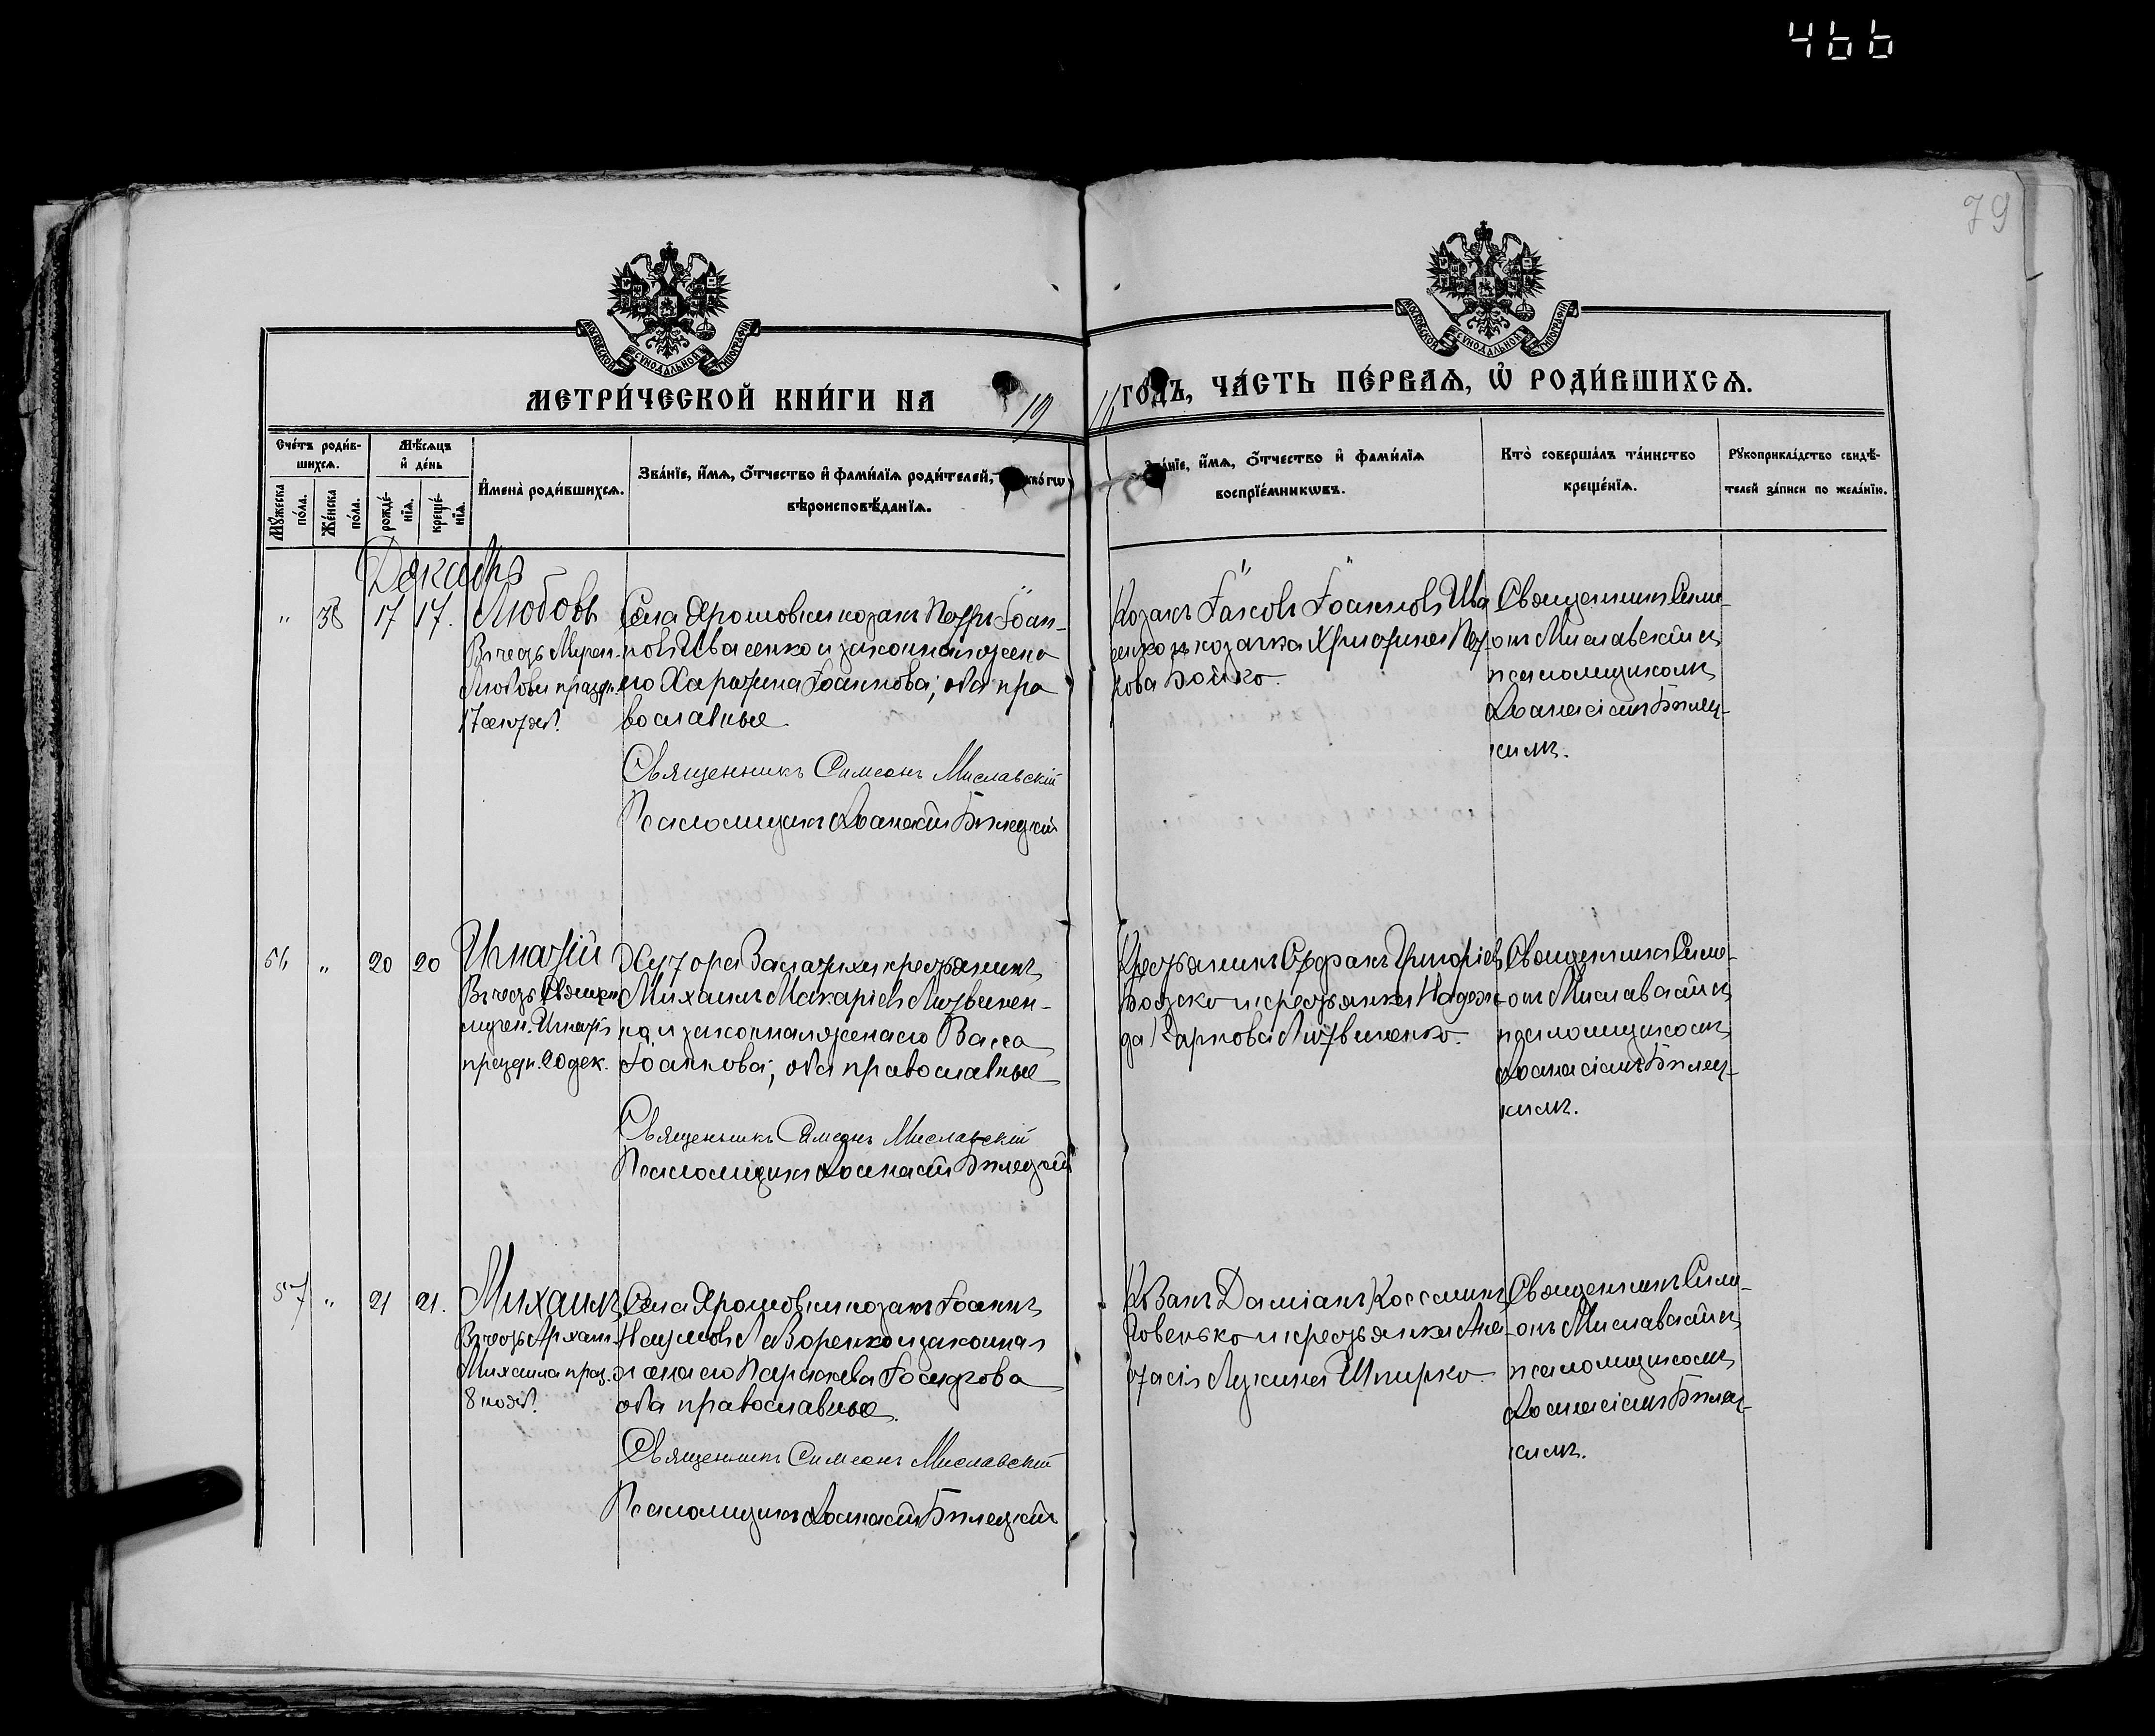 466
79
МОСКОВСКОЙ СѴНОДАЛЬНОЙ ТИПОГРАФІИ
МОСКОВСКОЙ СѴНОДАЛЬНОЙ ТИПОГРАФІИ
МЕТРИ́ЧЕСКОЙ КНИ́ГИ НА 19
16 ГО́ДЪ, ЧА́СТЬ ПЕ́РВАѦ, Ѽ РОДИ́ВШИХСѦ.
Сче́тъ роди́в-
шихсѧ.
Мꙋ́жеска
по́ла.
Же́нска
по́ла.
Мѣ́сѧцъ
и҆ де́нь
рожде́-
нїѧ.
креще́-
нїѧ.
И҆мена̀ роди́вшихсѧ.
Зва́нїе, и҆́мѧ, ѻ҆́тчество и҆ фами́лїѧ роди́телей,
вѣроисповѣ́данїѧ.
Зва́нїе, и҆́мѧ, ѻ҆́тчество и҆ фами́лїѧ
воспрїе́мникѡвъ.
Кто̀ соверша́лъ та́инство
креще́нїѧ.
Рꙋкоприкла́дство свидѣ́-
телей за́писи по жела́нїю.
Декабрь
" 38 17 17.
Любовь
Въ честь Мучен.
Любови праздн.
17 сентяб.
Села Ярошовки козакъ Петръ Іоан-
новъ Ивасенко и законная жена
его Харитина Іоаннова; оба пра
вославные
Священникъ Симеонъ Миславскій
Псаломщикъ Аѳанасій Бѣлецкій
Козакъ Іаковъ Іоанновъ Ива
сенко и козачка Христина Пет
рова Бойко.
Священникъ Симе-
онъ Миславскій съ
псаломщикомъ
Аѳанасіемъ Бѣлец-
кимъ.
56 " 20 20
Игнатій
Въ честь Священ
мучен. Игнатія
праздн. 20 дек.
Михаилъ Макаріевъ Литвинен-
ко и законная жена его Васса
Іоаннова; оба православные
Священникъ Симеонъ Миславскій
Псаломщикъ Аѳанасій Бѣлецкій
Крестьянинъ Стефанъ Григоріевъ
и крестьянка Надеж
да Карпова Литвиненко.
Священникъ Симе-
онъ Миславскій съ
псаломщикомъ
Аѳанасіемъ Бѣлец-
кимъ.
57 " 21 21.
Михаилъ
Въ честь Архан.
Михаила праз.
8 нояб.
Села Ярошовки козакъ Іоаннъ
Наумовъ Лаворенко и законная
жена его Параскева
оба православные.
Священникъ Симеонъ Миславскій
Псаломщикъ Аѳанасій Бѣлецкій
Козакъ Даміанъ Косминъ
и крестьянка Ана
стасія Лукина Шпирко.
Священникъ Симе-
онъ Миславскій съ
псаломщикомъ
Аѳанасіемъ Бѣлец-
кимъ.